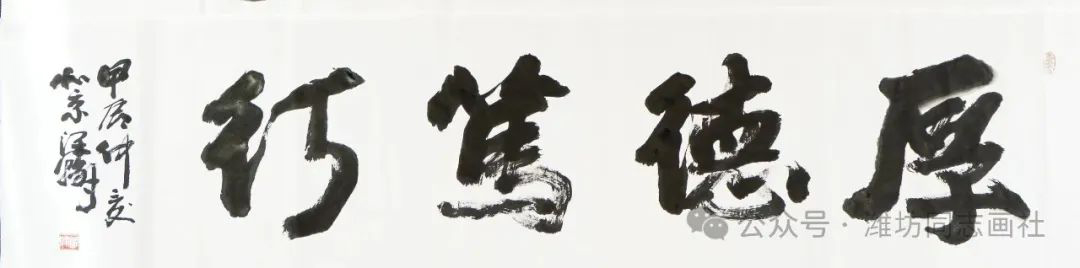 厚德笃行
甲辰仲夏
公众号·潍坊同志画社